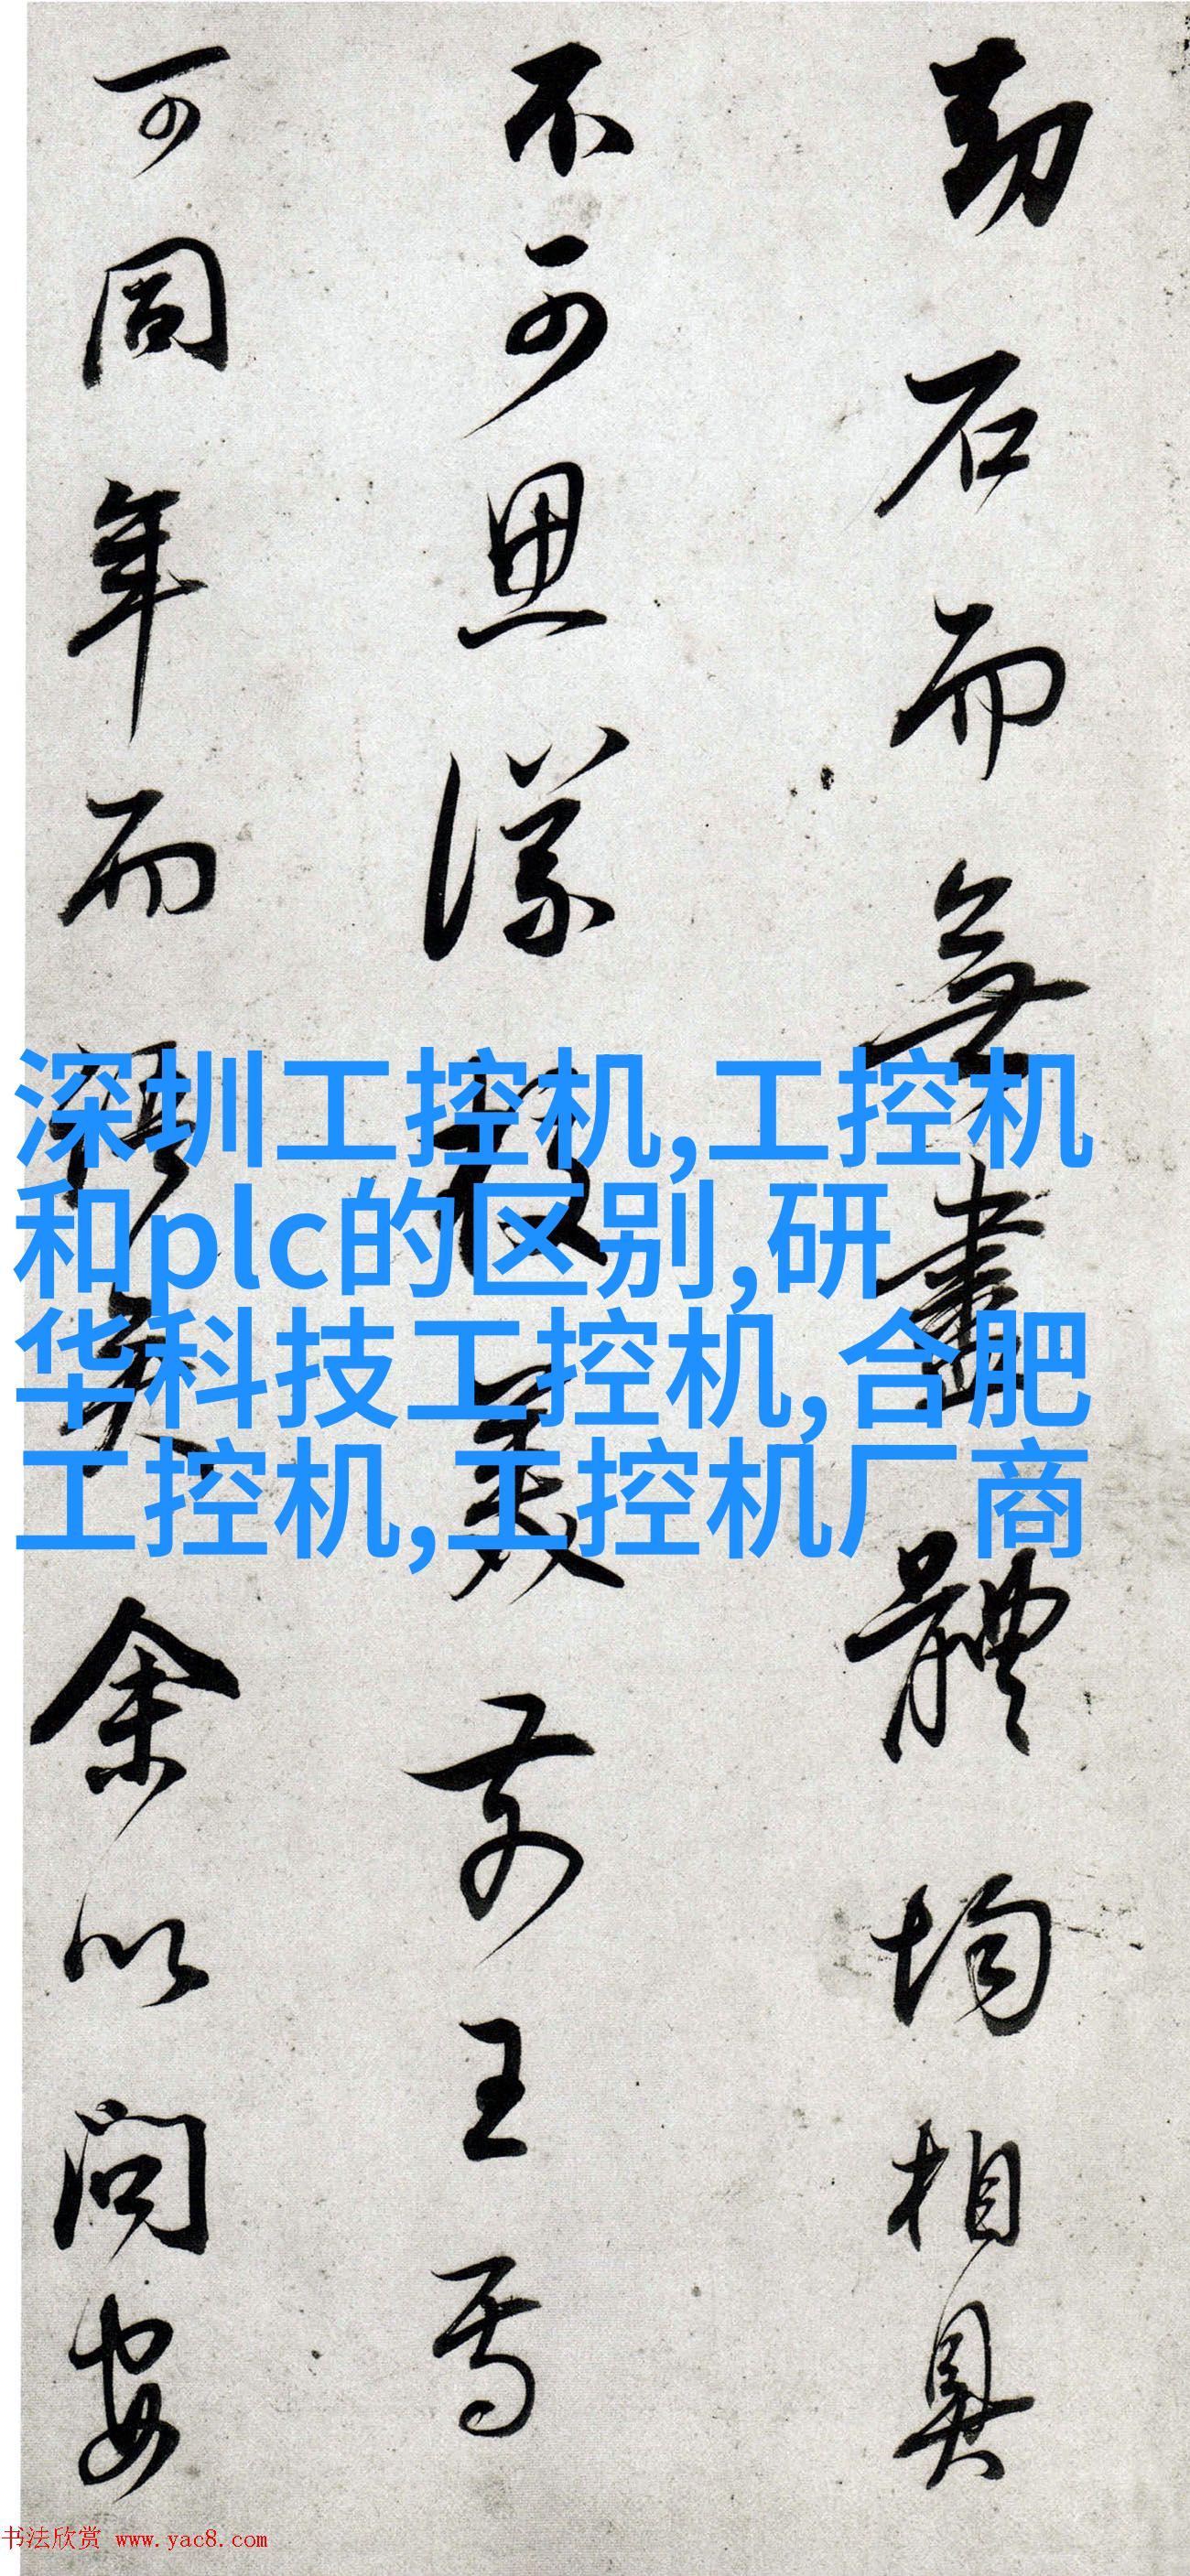 劫石而無盡體均相具
不可思議美前王焉
可同年而語矣余以問安
深圳工控机,工控机
和plc的区别,研
华科技工控机,合肥
工控机,工控机厂商
书法欣赏 www.yac8.com